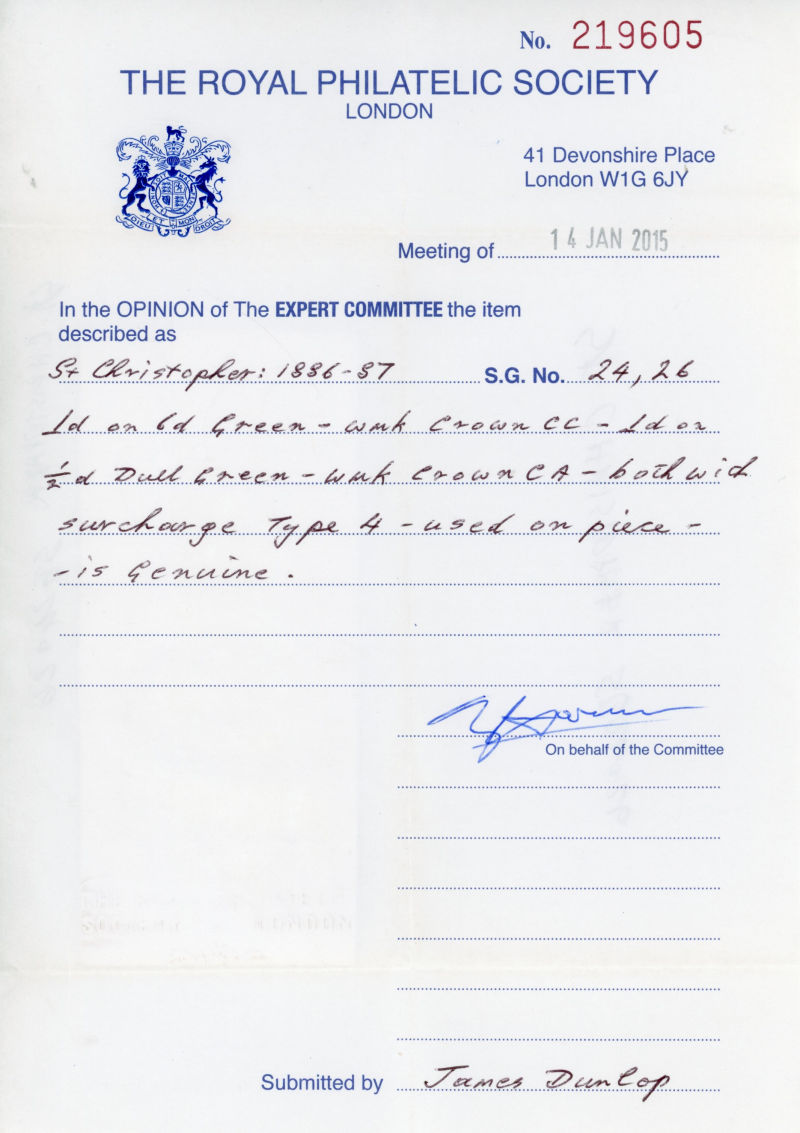 No. 219605
THE ROYAL PHILATELIC SOCIETY
LONDON
41 Devonshire Place
London W1G 6JY
DIEU ET MON DROIT
Meeting of 14 JAN 2015
In the OPINION of The EXPERT COMMITTEE the item
described as
St Christopher: 1886-87 S.G. No. 24, 26
1d on 6d Green - wmk Crown CC - 1d on
½d Dull Green - wmk Crown CA - both with
surcharge Type 4 - used on piece -
- is Genuine.
On behalf of the Committee
Submitted by James Dunlop